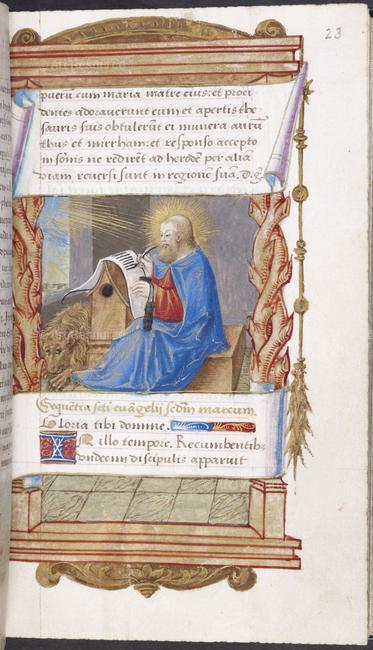 23
puerū cum maria matre eius: et proci
dentes adorauerunt eum et apertis the
sauris suis obtulerūt ei munera aurū
thus et mirrham: et responso accepto
in sōnis ne redirēt ad herodē per aliā
viam reuersi sunt in regionē suā. D. g.
Sequētia sc̄ti euāgelij scdm̄ marcum.
Gloria tibi domine.
IN illo tempore. Recumbentib᷒
vndecim discipulis apparuit